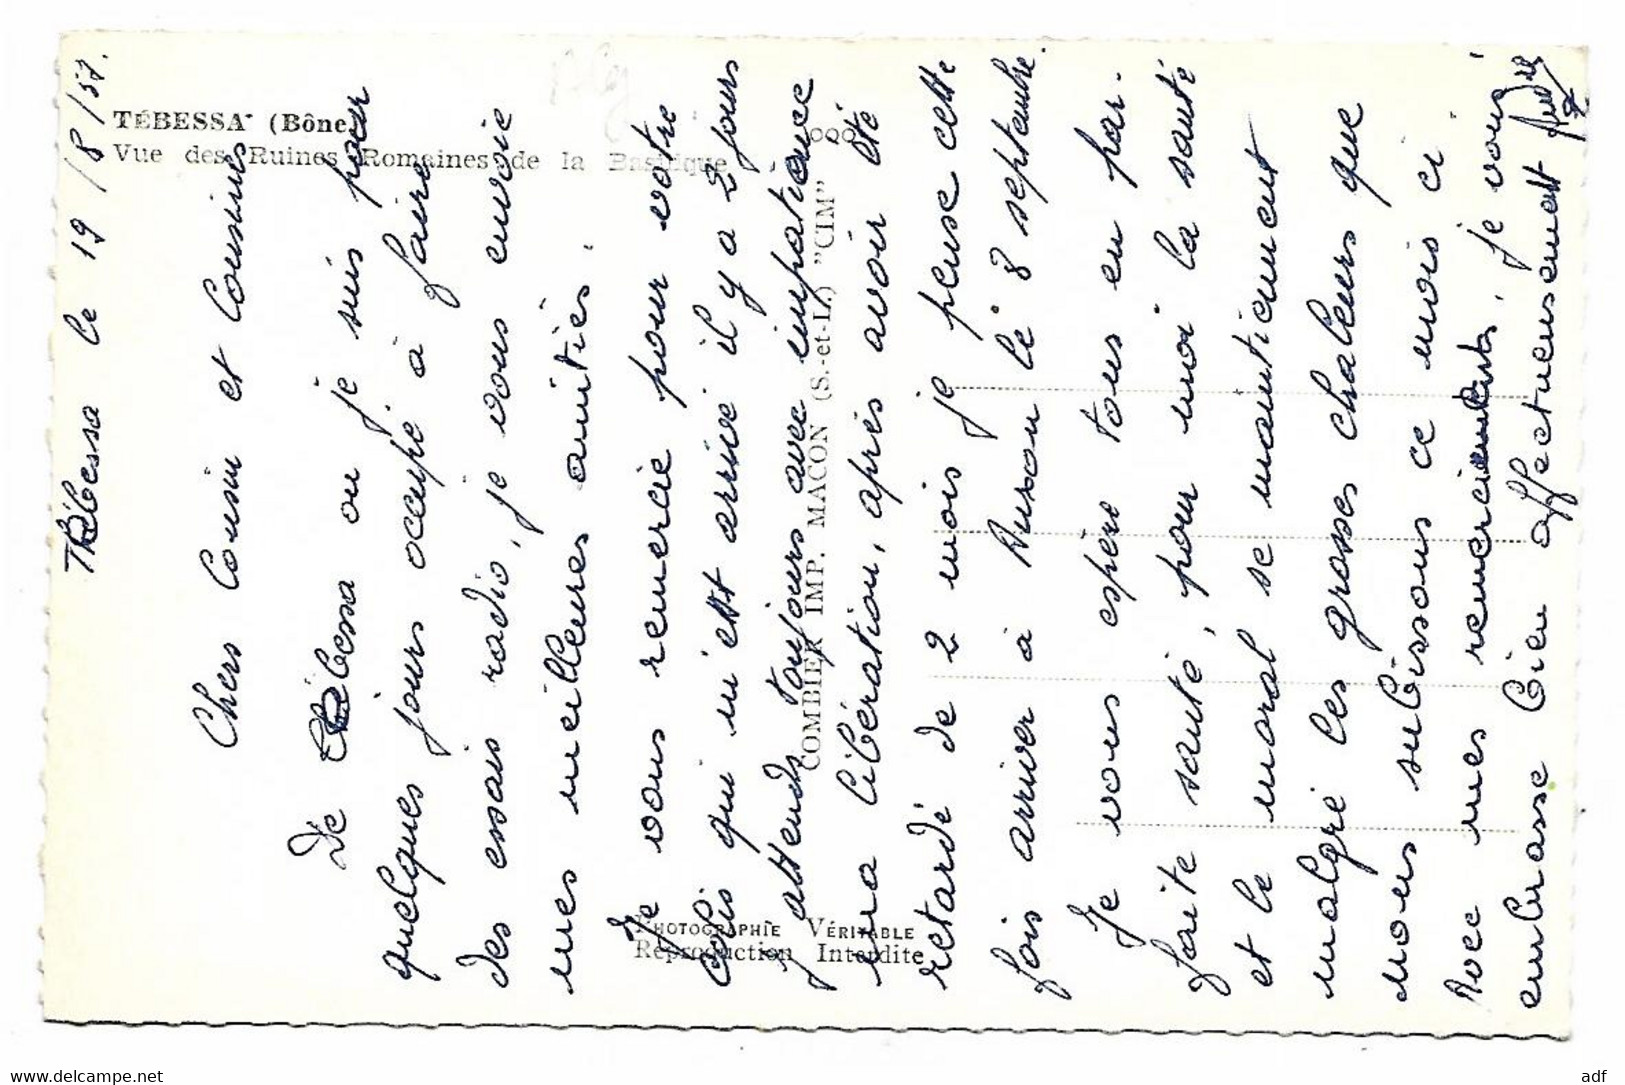 TÉBESSA (Bône)
Vue des Ruines Romaines de la Basilique
COMBIER IMP. MACON (S.-et-L.) "CIM"
PHOTOGRAPHIE VÉRITABLE
Reproduction Interdite
Tébessa le 19/8/57.
Chers Cousin et Cousines
De Tébessa ou je suis pour
quelques jours occupé à faire
des essais radio, je vous envoie
mes meilleures amitiés.
Je vous remercie pour votre
colis qui m'est arrivé il y a 2 jours
J'attends toujours avec impatience
ma libération, après avoir été
retardé de 2 mois je pense cette
fois arriver à le 8 septembre.
Je vous espère tous en par-
faite santé, pour moi la santé
et le moral se maintiennent
malgré les grosses chaleurs que
nous subissons ce mois ci
Avec mes remerciements, je vous
embrasse bien affectueusement
André
www.delcampe.net
adf